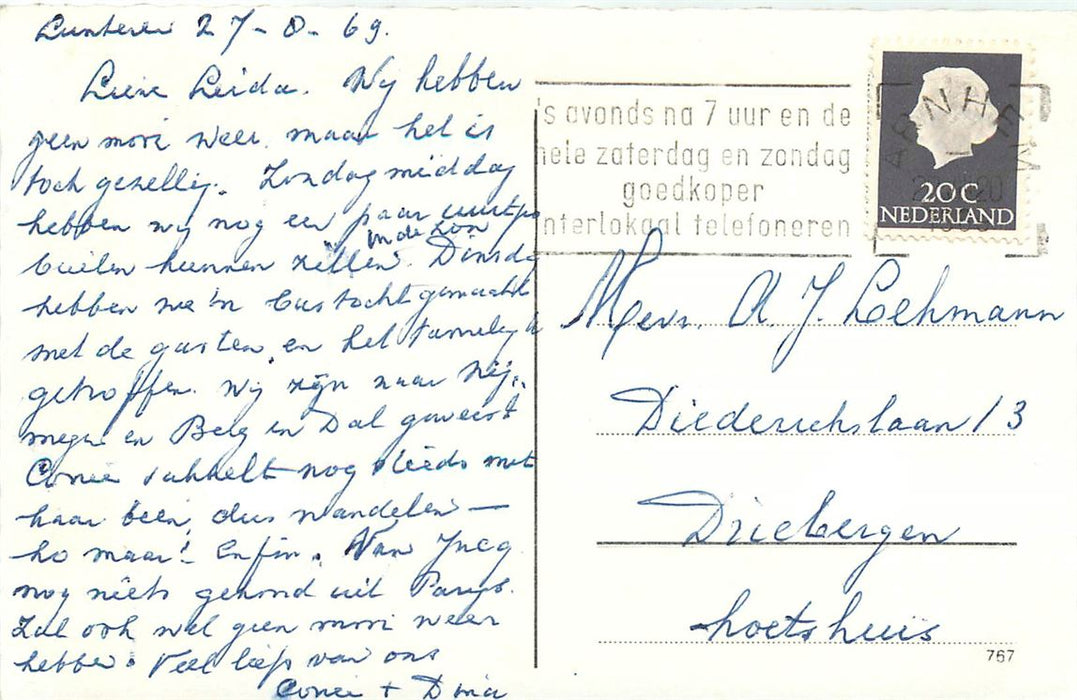 Lunteren 27-8-69.
Lieve Leida. Wij hebben
geen mooi weer, maar het is
toch gezellig. Zondagmiddag
hebben wij nog een paar uurtjes
in de zon
buiten kunnen zitten. Dinsdag
hebben we 'n bustocht gemaakt
met de gasten, en het
getroffen. Wij zijn naar Nij-
megen en Berg en Dal geweest
Corrie sukkelt nog steeds met
haar been, dus wandelen —
ho maar! Enfin. Van
nog niets gehoord uit Parijs.
Zal ook wel geen mooi weer
hebben. Veel liefs van ons
Corrie + Dina
's avonds na 7 uur en de
hele zaterdag en zondag
goedkoper
interlokaal telefoneren
ARNHEM
20 C
NEDERLAND
Mevr. A. J. Lehmann
Diederichslaan 13
Driebergen
767